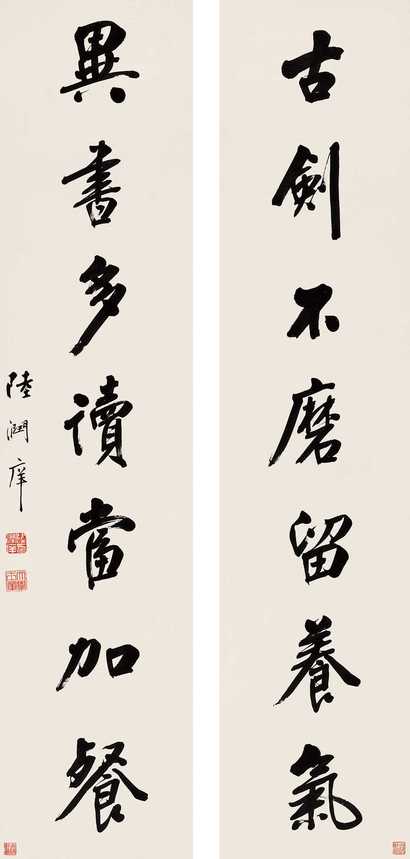 古劍不磨留養氣
異書多讀當加餐
陸潤庠